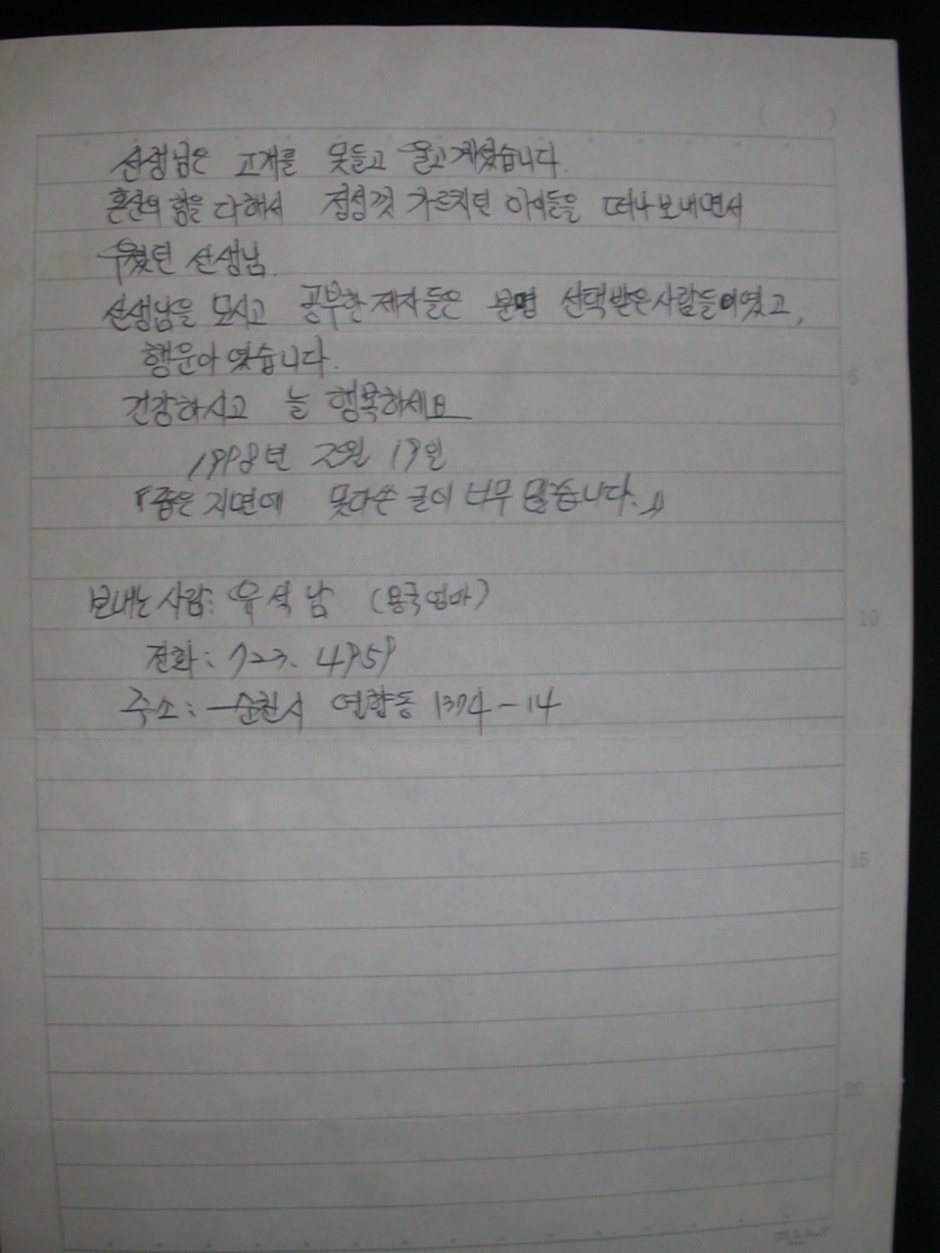 선생님은 고개를 못들고 울고계셨습니다.
혼신의 힘을 다해서 정성껏 가르치던 아이들을 떠나보내면서
우셨던 선생님.
선생님을 모시고 공부한 제자들은 분명 선택받은사람들이였고,
행운아 였습니다.
건강하시고 늘 행복하세요
1998년 2월 19일
「좁은 지면에 못다쓴 글이 너무 많습니다.」
보내는 사람: 유석남 (용국엄마)
전화: 723. 4959
주소: 순천시 연향동 1374-14
5
10
15
20